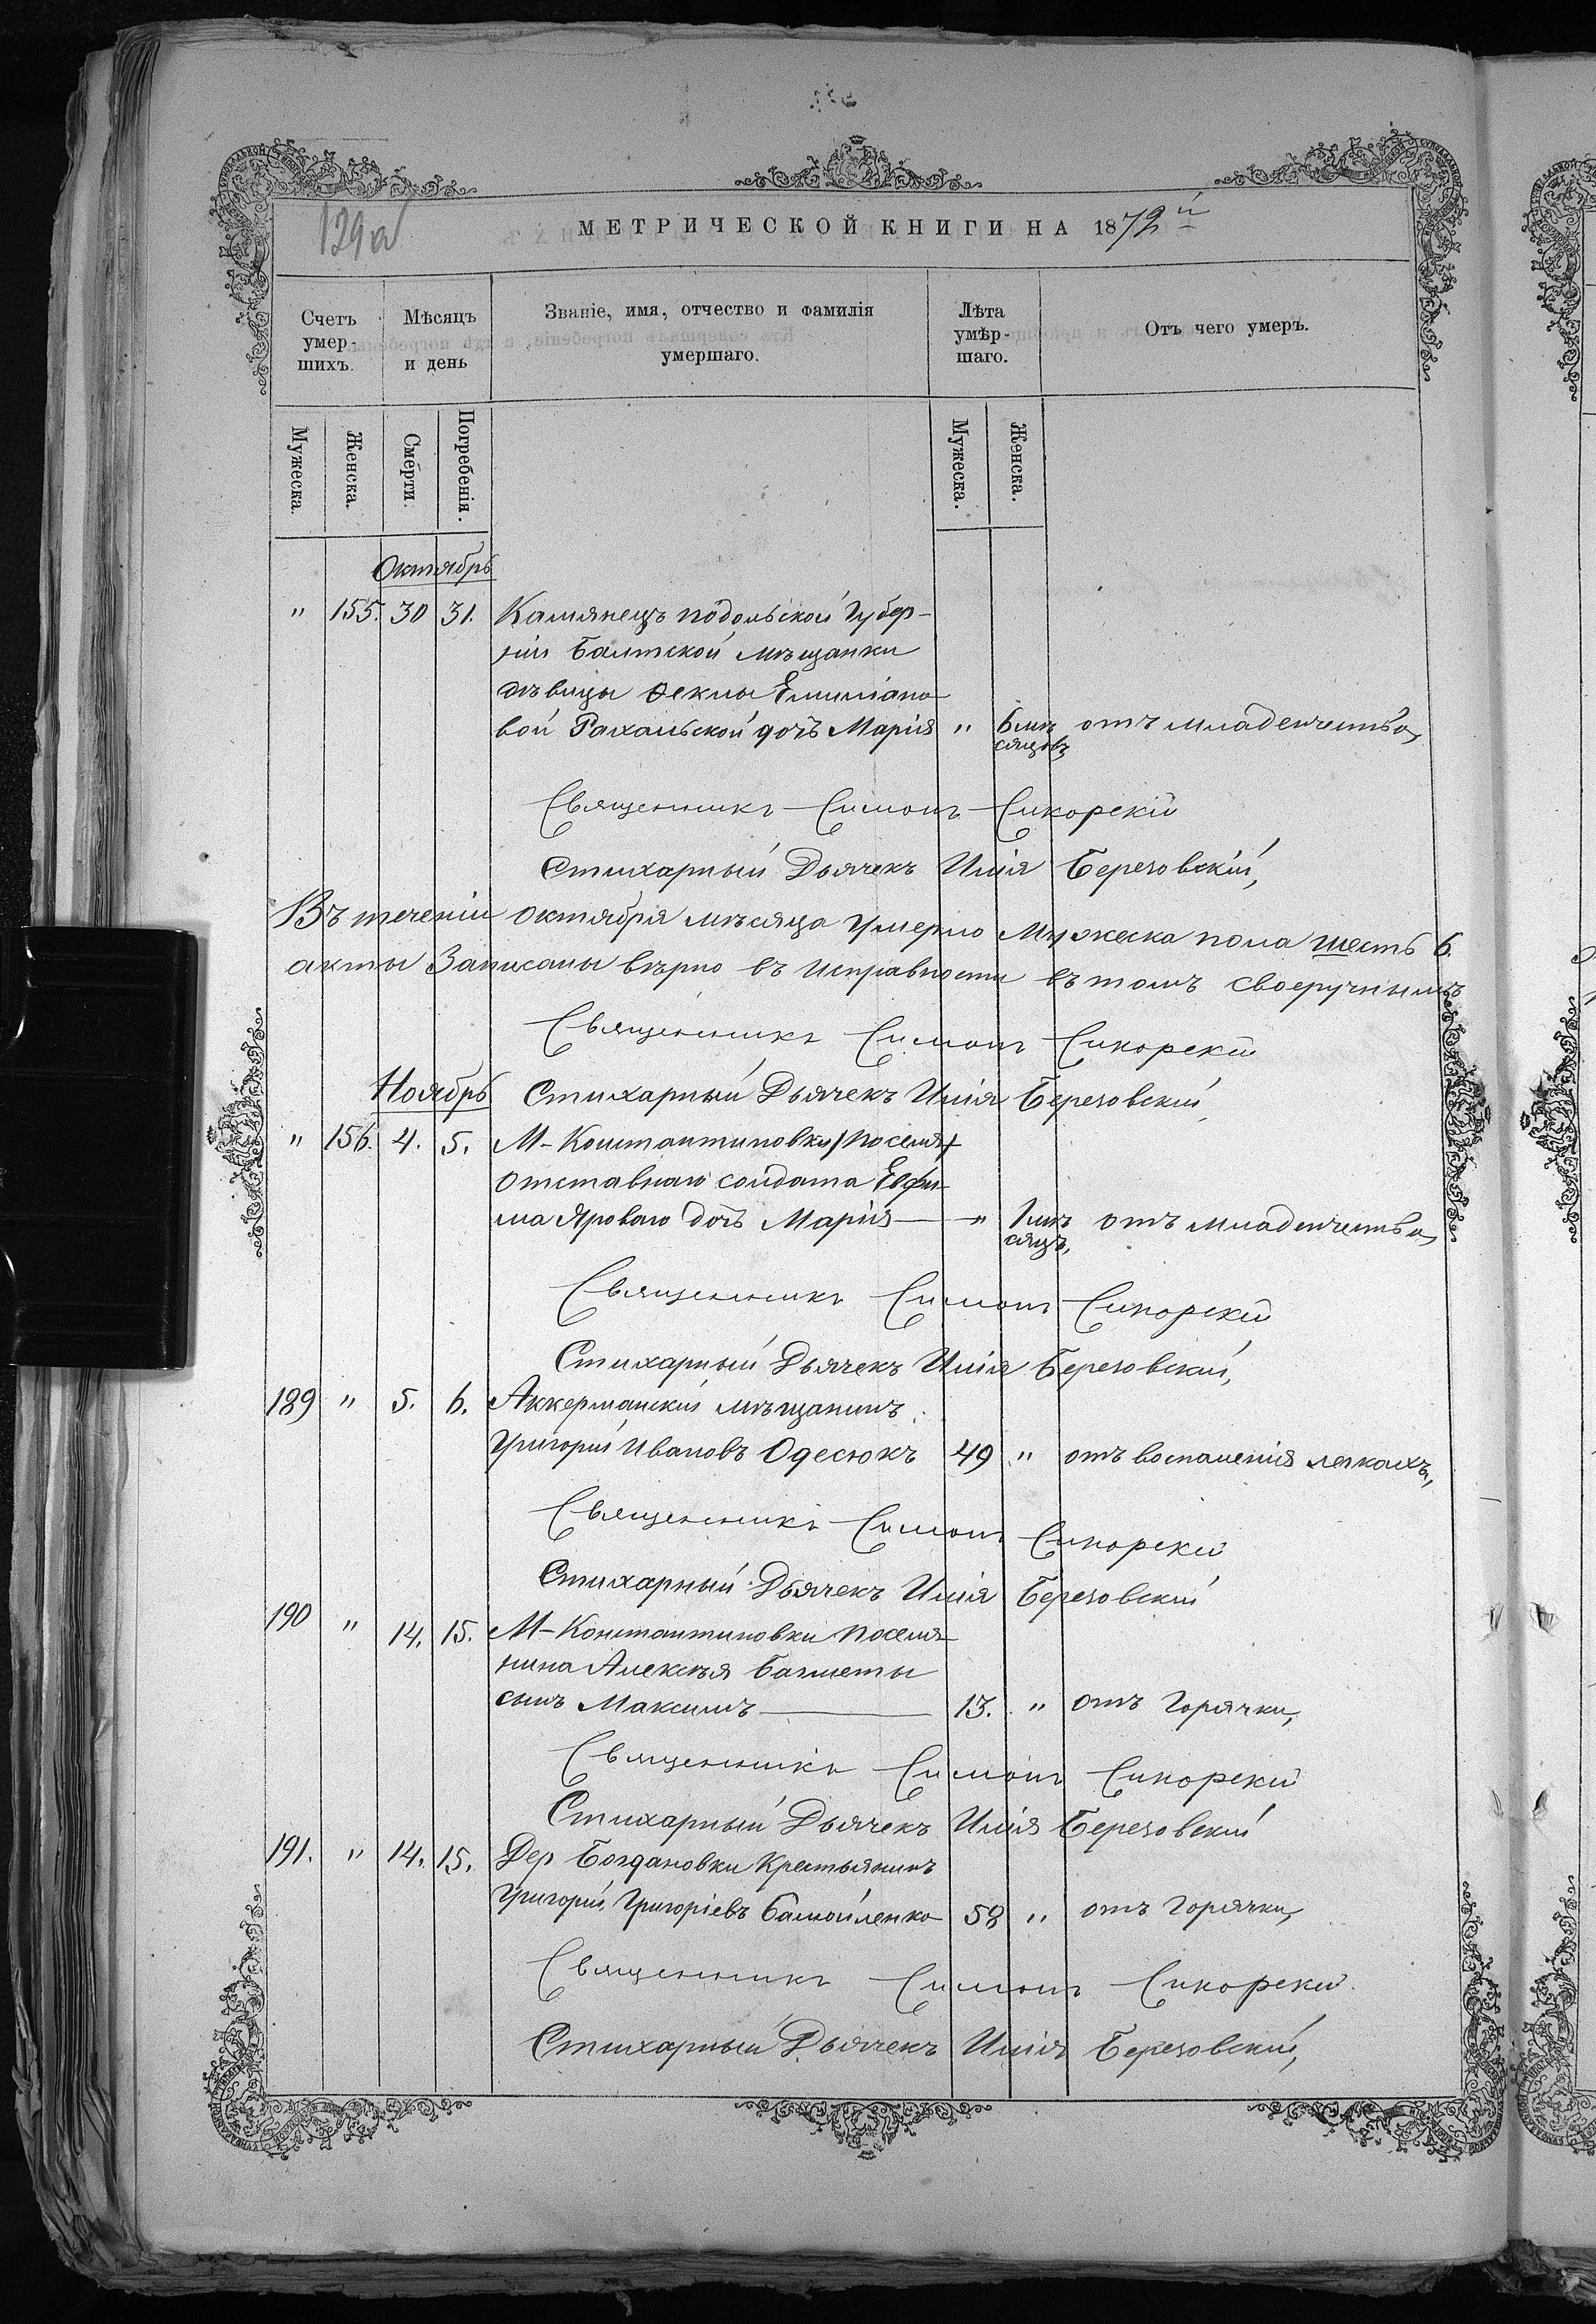 129об
МЕТРИЧЕСКОЙ КНИГИ НА 1872й
Счетъ умер-шихъ.
Мѣсяцъ и день
Званіе, имя, отчество и фамилія умершаго.
Лѣта умѣр-шаго.
Отъ чего умеръ.
Мужеска. Женска. Смерти. Погребенія. Мужеска. Женска.
Октябрь
" 155. 30 31. Камянецъ подольской Губер-
ніи Балтской мѣщанки
дѣвицы Ѳеклы Емиліано-
вой Рахальской дочъ Марія " 6 мѣ отъ младенчества,
сяцовъ
Священникъ Симонъ Сикорскій
Стихарный Дьячекъ Илія Березовскій,
Въ теченіи октября мѣсяца умерло Мужеска пола шесть 6.
акты Записаны вѣрно въ исправности въ томъ своеручнымъ
Священникъ Симонъ Сикорскій
Ноябрь Стихарный Дьячекъ Илія Березовскій
" 156. 4. 5. М-Константиновки /поселя/
отставнаго солдата Евфи-
ма Яроваго дочъ Марія " 1 мѣ отъ младенчества,
сяцъ,
Священникъ Симонъ Сикорскій
Стихарный Дьячекъ Илія Березовскій,
189 " 5. 6. Аккерманскій мѣщанинъ
Григорій Ивановъ Одесюкъ 49 " отъ воспаленія легкахъ,
Священникъ Симонъ Сикорскій
Стихарный Дьячекъ Илія Березовскій
190 " 14. 15. М-Константиновки поселя-
нина Алексѣя Багметы
сынъ Максимъ 13. " отъ Горячки,
Священникъ Симонъ Сикорскій
Стихарный Дьячекъ Илія Березовскій
191. " 14. 15. Дер Богдановки Крестьянинъ
Григорій Григоріевъ Самойленко 58 " отъ Горячки,
Священникъ Симонъ Сикорскій.
Стихарный Дьячекъ Илія Березовскій,